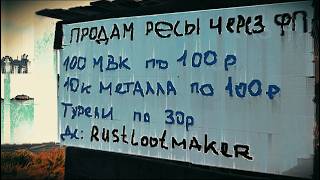 ПРОДАМ РЕСЫ ЧЕРЕЗ ФП
100 МВК по 100р
10к МЕТАЛЛА по 100р
ТУРЕЛИ по 30р
ДС: RUSTLOOTMAKER